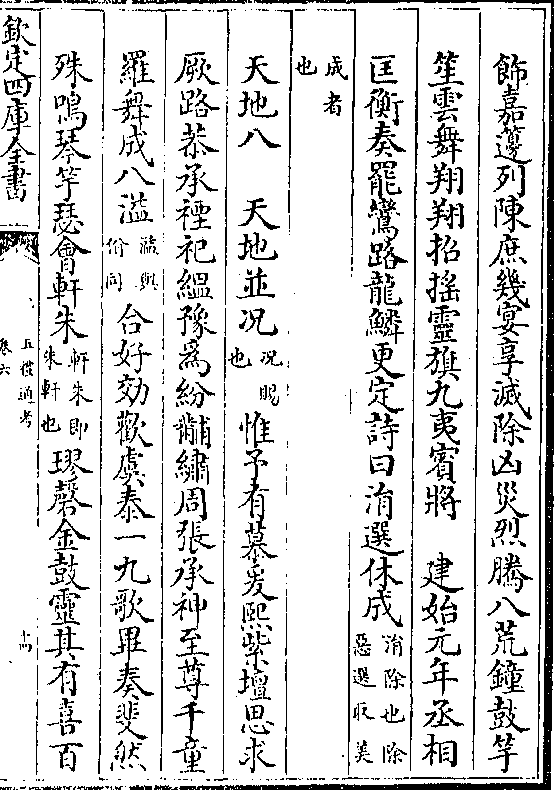 飾嘉籩列陳庶幾宴享滅除凶災烈騰八荒鐘鼓竽
笙雲舞翔翔招搖靈旗九夷賓將　建始元年丞相
匡衡奏罷鸞路龍鱗更定詩曰涓選休成涓除也除惡選取美
成者也
天地八　天地並况况賜也惟予有慕爰熙紫壇思求
厥路恭承禋祀緼豫為紛黼繡周張承神至尊千童
羅舞成八溢溢與佾同合好効歡虞泰一九歌畢奏斐然
殊鳴琴竽瑟會軒朱軒朱即朱軒也璆磬金鼓靈其有喜百
欽定四庫全書
五禮通考
卷六